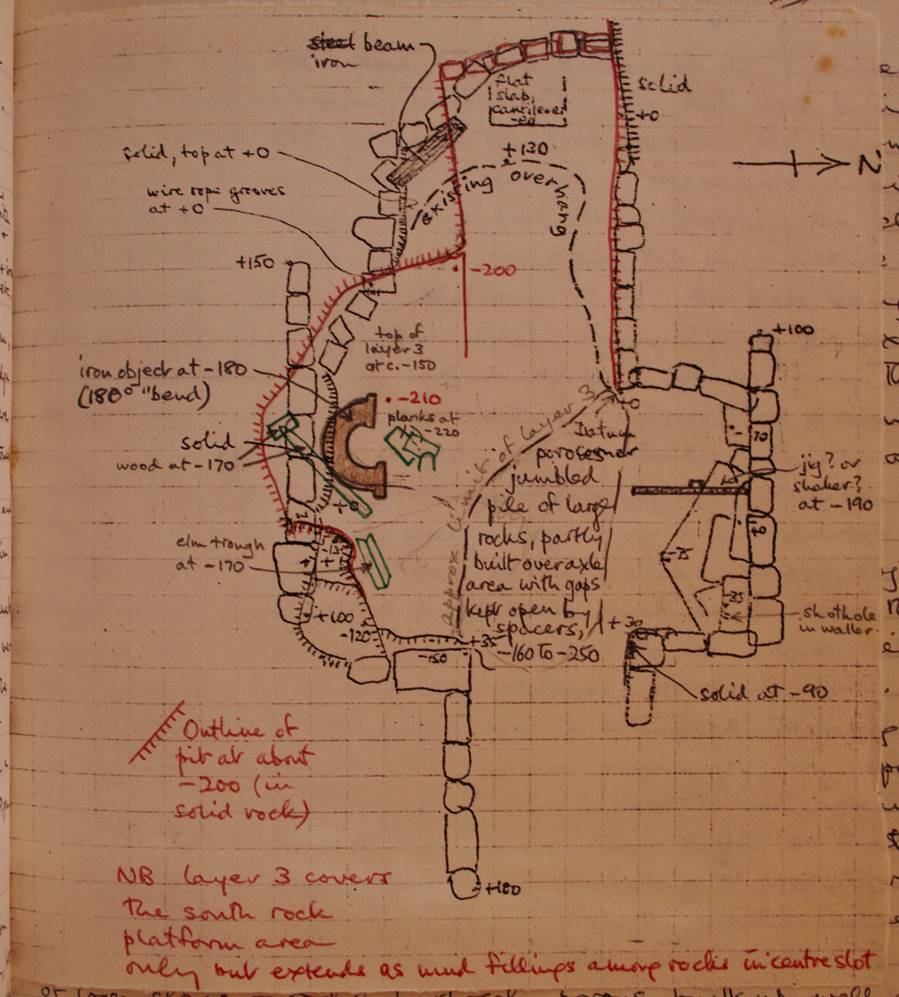 steel beam
iron
flat
slab,
cantilever
-20
solid
+0
+130
existing overhang
N
solid, top at +0
wire rope grooves
at +0
+150
-200
top of
layer 3
at c. -150
+100
iron object at -180
(180° "bend)
-210
planks at
-220
solid
wood at -170
+0
elm trough
at -170
+100
-120
-150
+35
approx limit of layer 3
Datum
jumbled
pile of large
rocks, partly
built over axle
area with gaps
kept open by
spacers,
-160 to -250
70
jig? or
shaker?
at -190
-75
shothole
in waller
+30
solid at -90
+100
Outline of
pit at about
-200 (in
solid rock)
NB layer 3 covers
the south rock
platform area
only but extends as mud fillings among rocks in centre slot